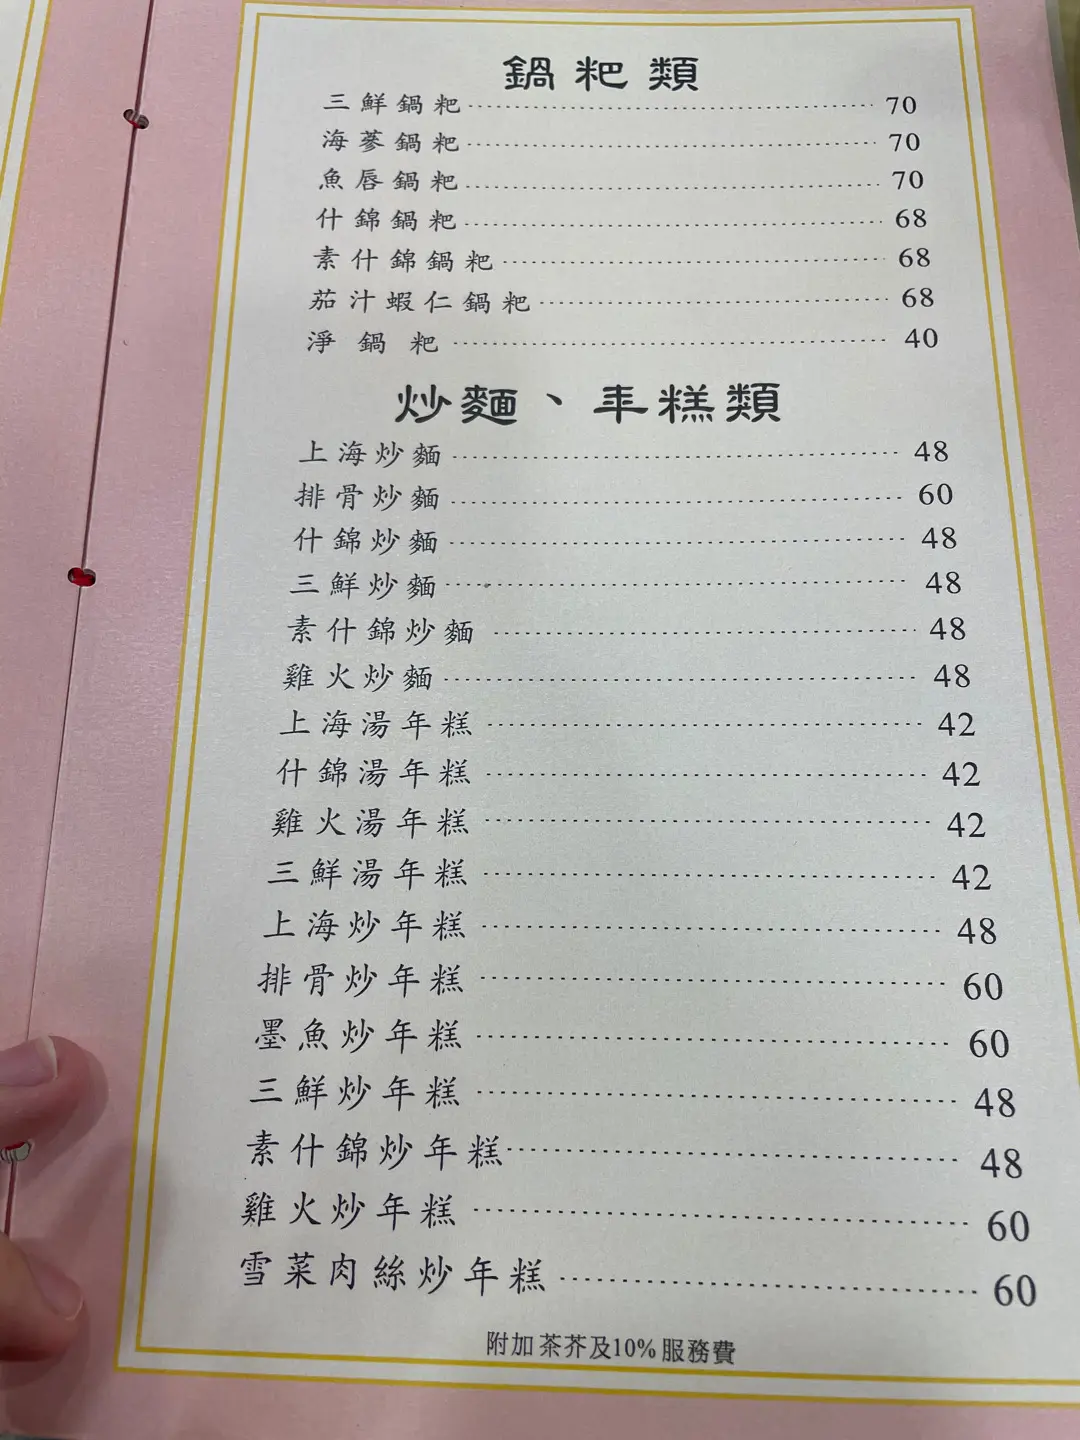 鍋粑類
三鮮鍋粑 70
海蔘鍋粑 70
魚唇鍋粑 70
什錦鍋粑 68
素什錦鍋粑 68
茄汁蝦仁鍋粑 68
淨鍋粑 40
炒麵、年糕類
上海炒麵 48
排骨炒麵 60
什錦炒麵 48
三鮮炒麵 48
素什錦炒麵 48
雞火炒麵 48
上海湯年糕 42
什錦湯年糕 42
雞火湯年糕 42
三鮮湯年糕 42
上海炒年糕 48
排骨炒年糕 60
墨魚炒年糕 60
三鮮炒年糕 48
素什錦炒年糕 48
雞火炒年糕 60
雪菜肉絲炒年糕 60
附加茶芥及10%服務費